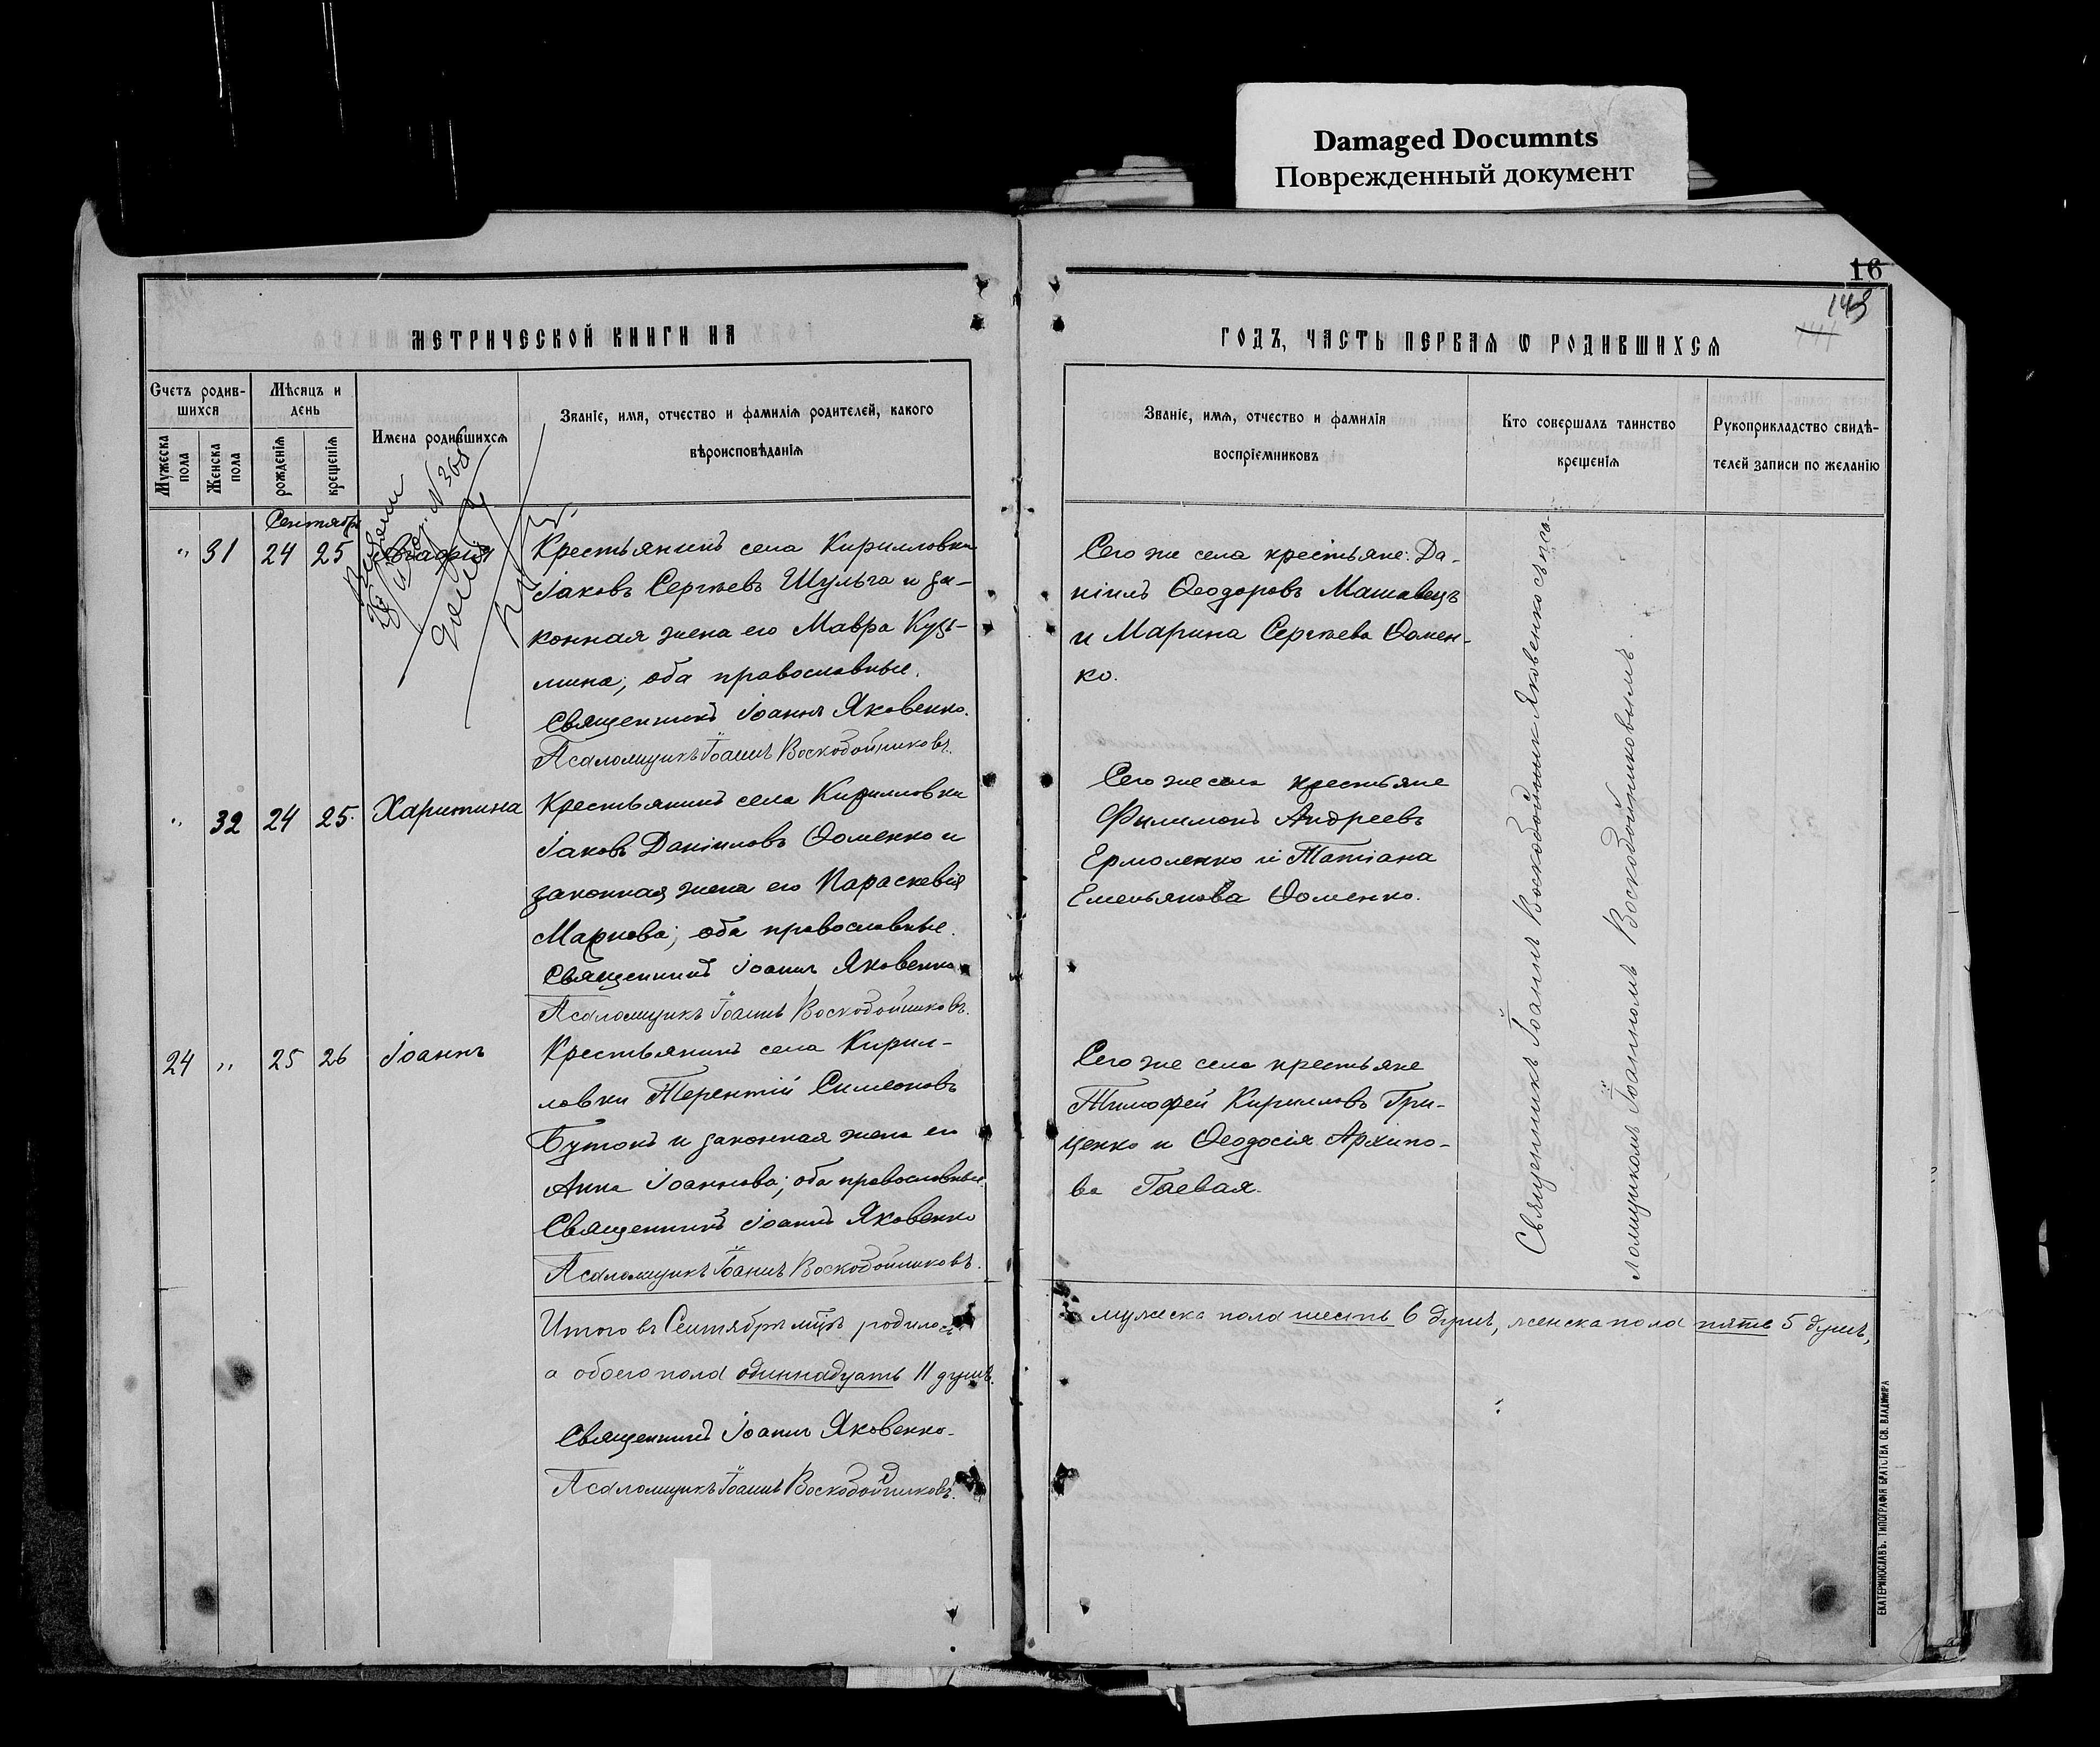 Damaged Documnts
Поврежденный документ
16
МЕТРИЧЕСКОЙ КНИГИ НА
Счетъ родив-
шихся
Мѣсяцъ и
день
Мужеска
пола
Женска
пола
рожденія
крещенія
Имена родившихся
Званіе, имя, отчество и фамилія родителей, какого
вѣроисповѣданія
Сентябрь
" 31 24 25
Крестьянинъ села Кирилловки
Іаковъ Сергѣевъ Шульга и за-
конная жена его Мавра Кузь-
мина; оба православные.
Священникъ Іоаннъ Яковенко.
Псаломщикъ Іоаннъ Воскобойниковъ.
" 32 24 25. Харитина
Крестьянинъ села Кирилловки
Іаковъ Даніиловъ Ѳоменко и
законная жена его Параскевія
Маркова; оба православные.
Священникъ Іоаннъ Яковенко
Псаломщикъ Іоаннъ Воскобойниковъ.
24 " 25 26 Іоаннъ
Крестьянинъ села Кирил-
ловки Терентій Симеоновъ
Бутокъ и законная жена его
Анна Іоаннова; оба православные.
Священникъ Іоаннъ Яковенко
Псаломщикъ Іоаннъ Воскобойниковъ.
Итого въ Сентябрѣ мцѣ родилось
а обоего пола одиннадцать 11 душъ.
Священникъ Іоаннъ Яковенко.
Псаломщикъ Іоаннъ Воскобойниковъ.
ГОДЪ, ЧАСТЬ ПЕРВАЯ Ѡ РОДИВШИХСЯ
Званіе, имя, отчество и фамилія
воспріємниковъ
Кто совершалъ таинство
крещенія
Рукоприкладство свидѣ-
телей записи по желанію
Сего же села крестьяне: Да-
ніилъ Ѳеодоровъ Машавецъ
и Марина Сергѣева Ѳомен-
ко.
Сего же села крестьяне
Филимонъ Андреевъ
Ермоленко и Татіана
Емельянова Ѳоменко.
Сего же села крестьяне
Тимофей Кирилловъ Гри-
ценко и Ѳеодосія Архипо-
ва Гаевая.
Священникъ Іоаннъ Яковенко съ пса-
ломщикомъ Іоанномъ Воскобойниковымъ.
мужеска пола шесть 6 душъ, женска пола пять 5 душъ,
ЕКАТЕРИНОСЛАВЪ. ТИПОГРАФІЯ БРАТСТВА СВ. ВЛАДИМІРА